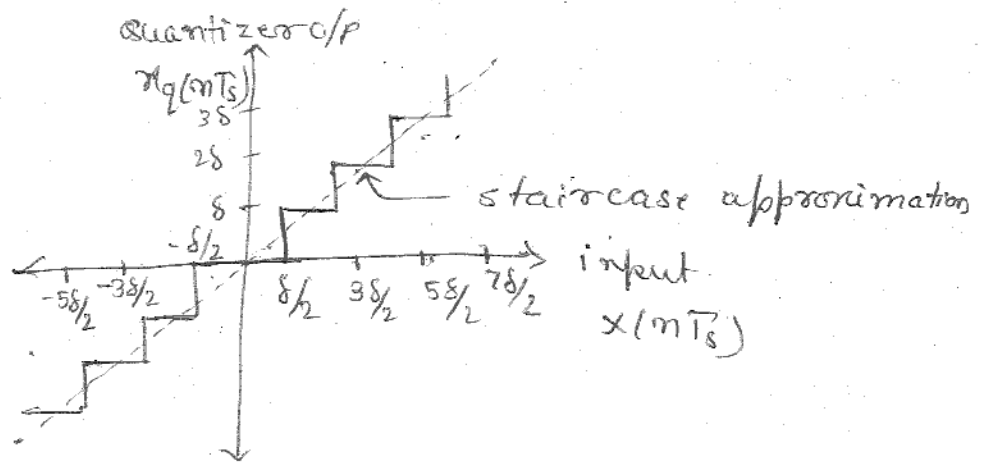 Quantizer o/p
xq(nTs)
3δ
2δ
δ
staircase approximation
-δ/2
input
-5δ/2 -3δ/2 δ/2 3δ/2 5δ/2 7δ/2
x(nTs)